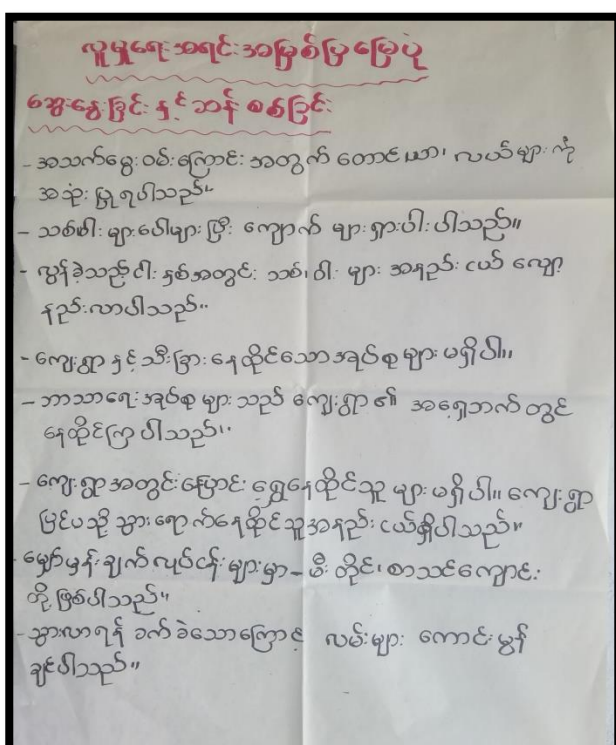 လူမှုရေးအရင်းအမြစ်ပြမြေပုံ
ဆွေးနွေးခြင်းနှင့်ဘန်စစ်ခြင်း
- အသက်မွေးဝမ်းကြောင်းအတွက် တောင်ယာ၊ လယ်များကို
အသုံးပြုရပါသည်။
- သစ်ဝါးများပေါများပြီး ကျောက်များရှားပါးပါသည်။
- လွန်ခဲ့သည့်ငါးနှစ်အတွင်း သစ်၊ ဝါးများ အနည်းငယ် လျော့
နည်းလာပါသည်။
- ကျေးရွာနှင့်သီးခြားနေထိုင်သောအုပ်စုများမရှိပါ။
- ဘာသာရေးအုပ်စုများသည် ကျေးရွာ၏ အရှေ့ဘက်တွင်
နေထိုင်ကြပါသည်။
- ကျေးရွာအတွင်းပြောင်းရွှေ့နေထိုင်သူများမရှိပါ။ ကျေးရွာ
ပြင်ပသို့သွားရောက်နေထိုင်သူအနည်းငယ်ရှိပါသည်။
- မျှော်မှန်းချက်လုပ်ငန်းများမှာ - မီးတိုင်၊ စာသင်ကျောင်း
တို့ဖြစ်ပါသည်။
- သွားလာရန်ခက်ခဲသောကြောင့် လမ်းများ ကောင်းမွန်
ချင်ပါသည်။